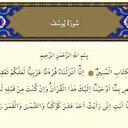 سُورَةُ يُوسُفَ
بِسْمِ اللَّهِ الرَّحْمَٰنِ الرَّحِيمِ
كِتَابِ الْمُبِينِ إِنَّا أَنْزَلْنَاهُ قُرْءَانًا عَرَبِيًّا لَعَلَّكُمْ
بِمَا أَوْحَيْنَا إِلَيْكَ هَٰذَا الْقُرْءَانَ وَإِنْ كُنْتَ مِنْ قَبْلِهِ
إِنِّي رَأَيْتُ أَحَدَ عَشَرَ كَوْكَبًا وَالشَّمْسَ وَالْقَمَرَ